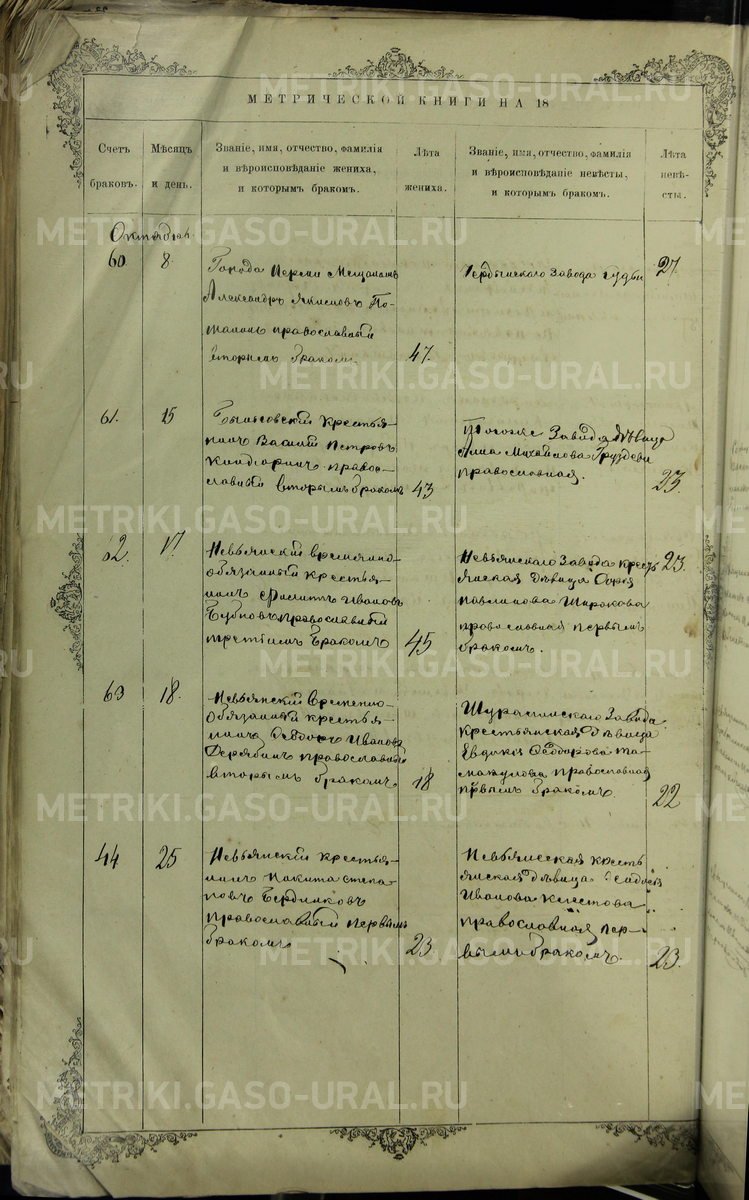 МЕТРИЧЕСКОЙ КНИГИ НА 18
Счетъ
браковъ.
Мѣсяцъ
и день.
Званіе, имя, отчество, фамилія
и вѣроисповѣданіе жениха,
и которымъ бракомъ.
Лѣта
жениха.
Званіе, имя, отчество, фамилія
и вѣроисповѣданіе невѣсты,
и которымъ бракомъ.
Лѣта
невѣ-
сты.
Октябрь
60
8.
Города Перми Мещанинъ
Александръ Якимовъ По-
православный
вторымъ бракомъ
47.
Завода
27.
61.
15
Крестья-
нинъ Василий Петровъ
право-
славный вторымъ бракомъ
43
Завода дѣвица
Анна Михайлова Груздева
православная.
23.
62
17
Невьянский временно-
обязанный крестья-
нинъ Филиппъ Ивановъ
Бубновъ православный
третьимъ бракомъ
45
Невьянскаго Завода кресть
янская дѣвица
Павлинова Широкова
православная первымъ
бракомъ.
23.
63
18.
Невьянский временно-
обязанный крестья-
нинъ Ѳеодоръ Ивановъ
Дерябинъ православный
вторымъ бракомъ
18
Шуралинскаго Завода
крестьянская дѣвица
Евдокия Ѳеодорова Та-
макулова православная
первымъ бракомъ
22
44
25
Невьянский крестья-
нинъ Никита Степа-
новъ Бердниковъ
православный первымъ
бракомъ
23
Невьянская кресть
янская дѣвица
Иванова
православная пер-
вымъ бракомъ.
23.
METRIKI.GASO-URAL.RU